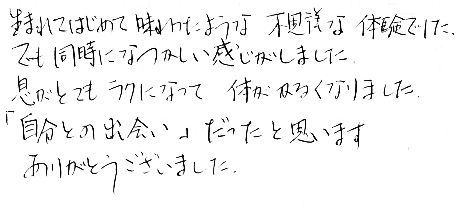 生まれてはじめて味わったような不思議な体験でした.
でも同時になつかしい感じがしました.
息がとてもラクになって体がかるくなりました.
「自分との出会い」だったと思います
ありがとうございました.